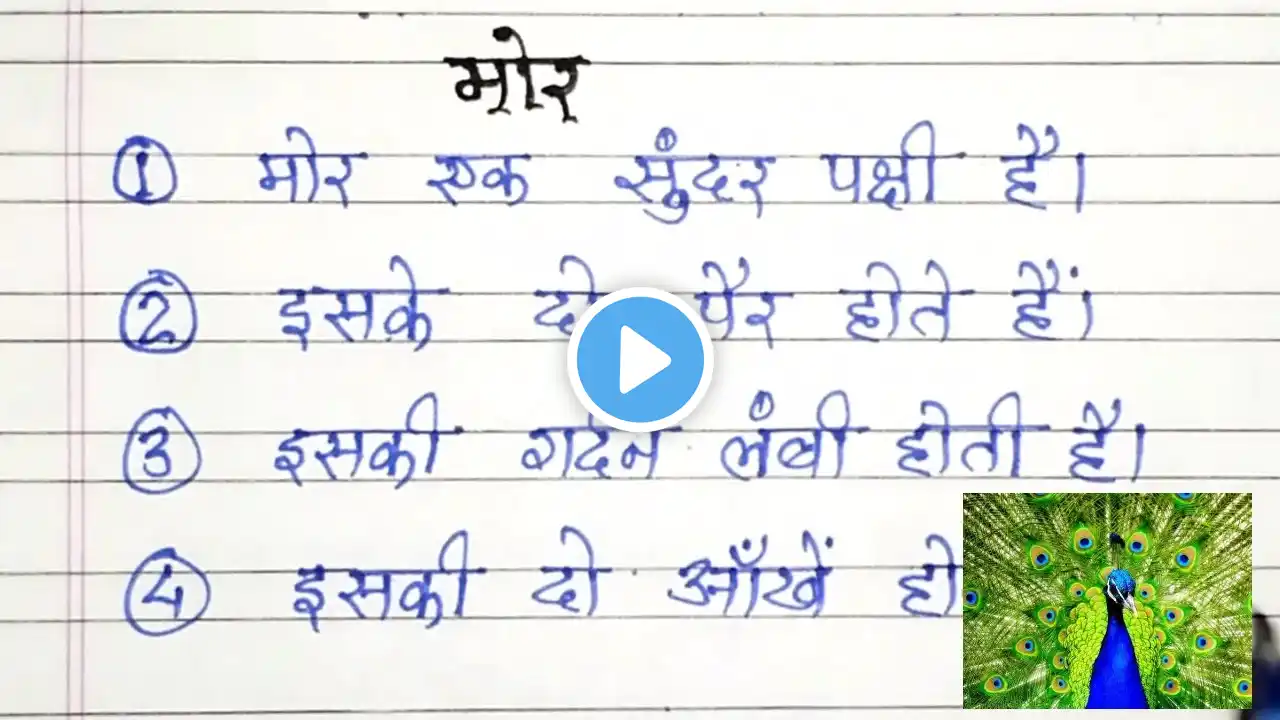 मोर
① मोर एक सुंदर पक्षी है।
② इसके दो पैर होते हैं।
③ इसकी गर्दन लंबी होती है।
④ इसकी दो आँखें हो